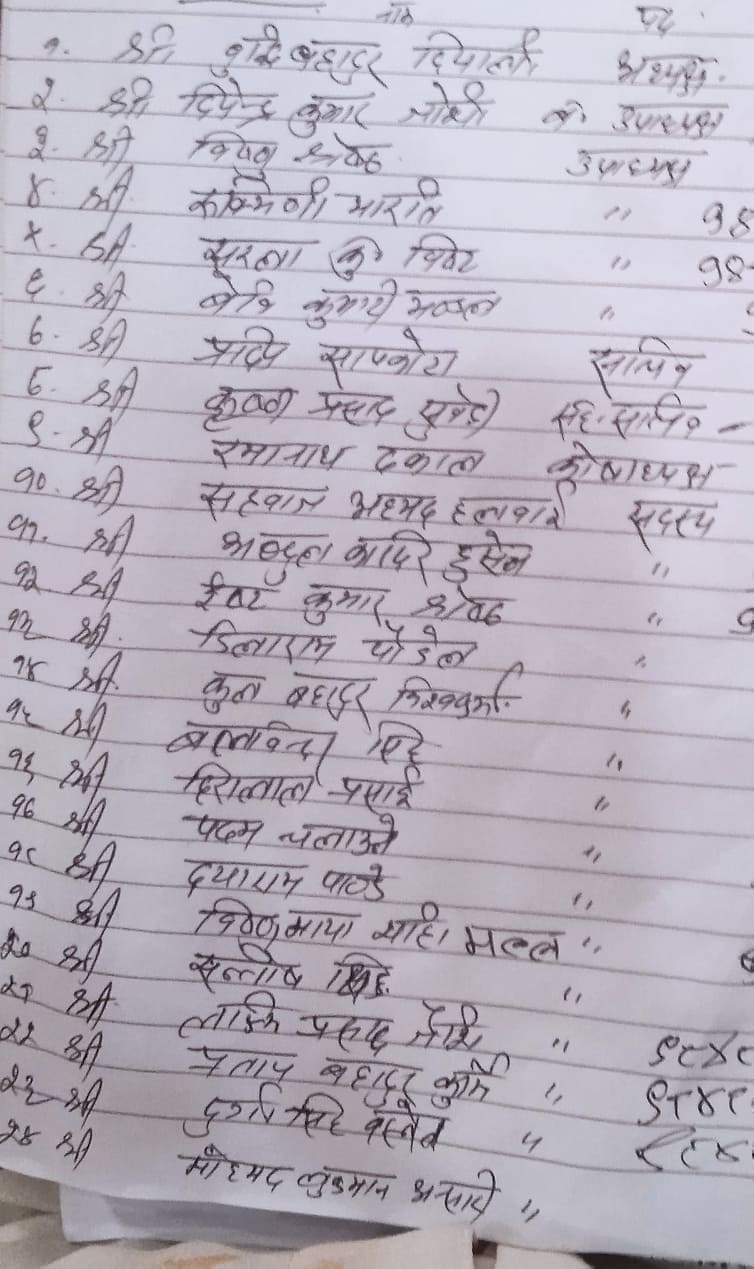 नाम पद
१. श्री बुद्धि बहादुर अध्यक्ष.
२. श्री दिपेन्द्र कुमार जोशी व. उपाध्यक्ष
३. श्री विष्णु श्रेष्ठ उपाध्यक्ष
४. श्री रुक्मिणी भारति " 98
५. श्री सुरला कु विष्ट " 98
६. श्री कुमारी मण्डल "
७. श्री प्रदिप सापकोटा सचिव
८. श्री कृष्ण प्रसाद सुवेदी सह-सचिव -
९. श्री रमानाथ ढकाल कोषाध्यक्ष
१०. श्री अहमद हलवाई सदस्य
११. श्री अब्दुल कादिर हुसेन "
१२ श्री ईश्वर कुमार श्रेष्ठ "
१३ श्री. डिलाराम पौडेल "
१४ श्री. कुल बहादुर विश्वकर्मा "
१५ श्री सिंह "
१६ श्री हिरालाल प्रसाई "
१७ श्री पदम चलाउने "
१८ श्री दयाराम पाण्डे "
१९ श्री विष्णुमाया शाही मल्ल "
२० श्री सन्तोष सिंह "
२१ श्री प्रसाद "
२२ श्री प्रताप बहादुर "
२३ श्री सिंह बस्नेत "
२४ श्री मोहमद अन्सारी "